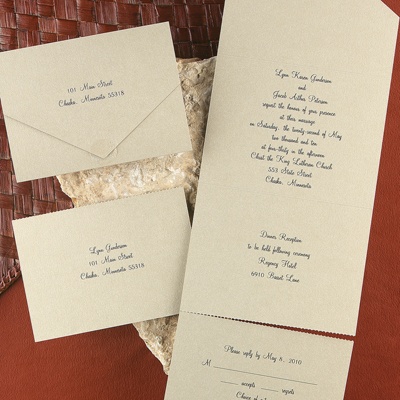 101 Main Street
Chaska, Minnesota 55318
Lynn Gunderson
101 Main Street
Chaska, Minnesota 55318
Lynn Karen Gunderson
and
Jacob Arthur Peterson
request the honor of your presence
at their marriage
on Saturday, the twenty-second of May
two thousand and ten
at four-thirty in the afternoon
Christ the King Lutheran Church
553 State Street
Chaska, Minnesota
Dinner Reception
to be held following ceremony
Regency Hotel
6910 Basset Lane
Please reply by May 8, 2010
M
accepts regrets
Choice of